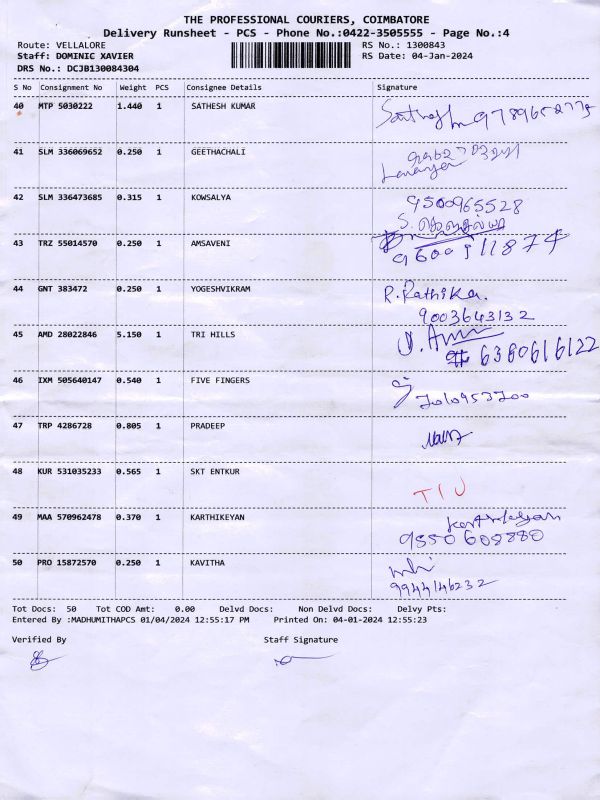 THE PROFESSIONAL COURIERS, COIMBATORE
Delivery Runsheet - PCS - Phone No.:0422-3505555 - Page No.:4
Route: VELLALORE RS No.: 1300843
Staff: DOMINIC XAVIER RS Date: 04-Jan-2024
DRS No.: DCJB130084304
S No Consignment No Weight PCS Consignee Details Signature
40 MTP 5030222 1.440 1 SATHESH KUMAR
41 SLM 336069652 0.250 1 GEETHACHALI
42 SLM 336473685 0.315 1 KOWSALYA 9500965528
43 TRZ 55014570 0.250 1 AMSAVENI
44 GNT 383472 0.250 1 YOGESHVIKRAM R.Rathika.
9003643132
45 AMD 28022846 5.150 1 TRI HILLS
6380616122
46 IXM 505640147 0.540 1 FIVE FINGERS
47 TRP 4286728 0.805 1 PRADEEP
48 KUR 531035233 0.565 1 SKT ENTKUR
49 MAA 570962478 0.370 1 KARTHIKEYAN Karthikeyan
50 PRO 15872570 0.250 1 KAVITHA
9944146232
Tot Docs: 50 Tot COD Amt: 0.00 Delvd Docs: Non Delvd Docs: Delvy Pts:
Entered By :MADHUMITHAPCS 01/04/2024 12:55:17 PM Printed On: 04-01-2024 12:55:23
Verified By Staff Signature